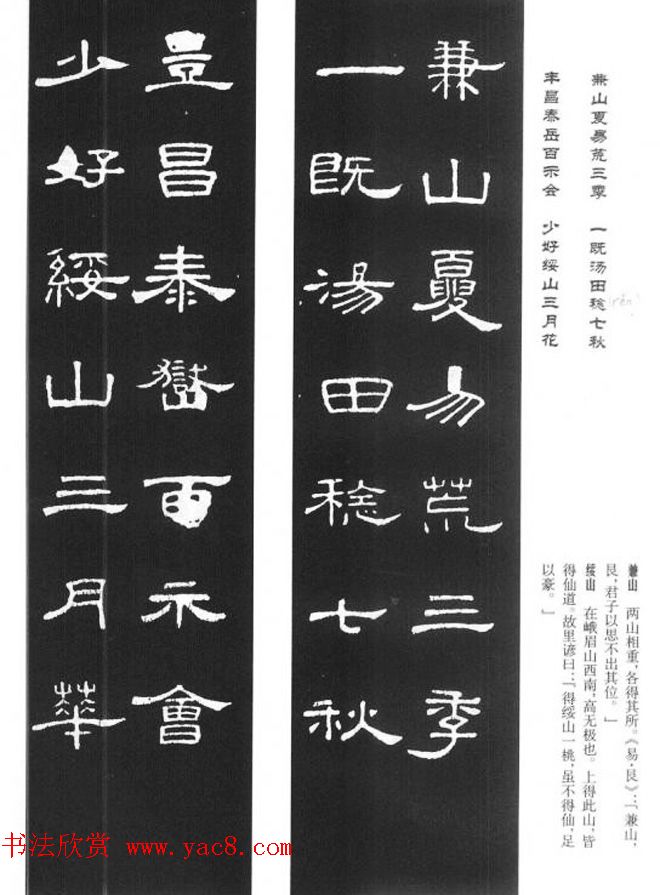 兼山夏易荒三季　一既汤田稔七秋
(rěn)
丰昌泰岳百示会　少好绥山三月花
兼山　两山相重，各得其所。《易·艮》：「兼山，
艮，君子以思不出其位。」
绥山　在峨眉山西南，高无极也。上得此山，皆
得仙道。故里谚曰：「得绥山一桃，虽不得仙，足
以豪。」
兼山夏易荒三季
一既湯田稔七秋
豐昌泰嶽百示會
少好綏山三月華
书法欣赏 www.yac8.com